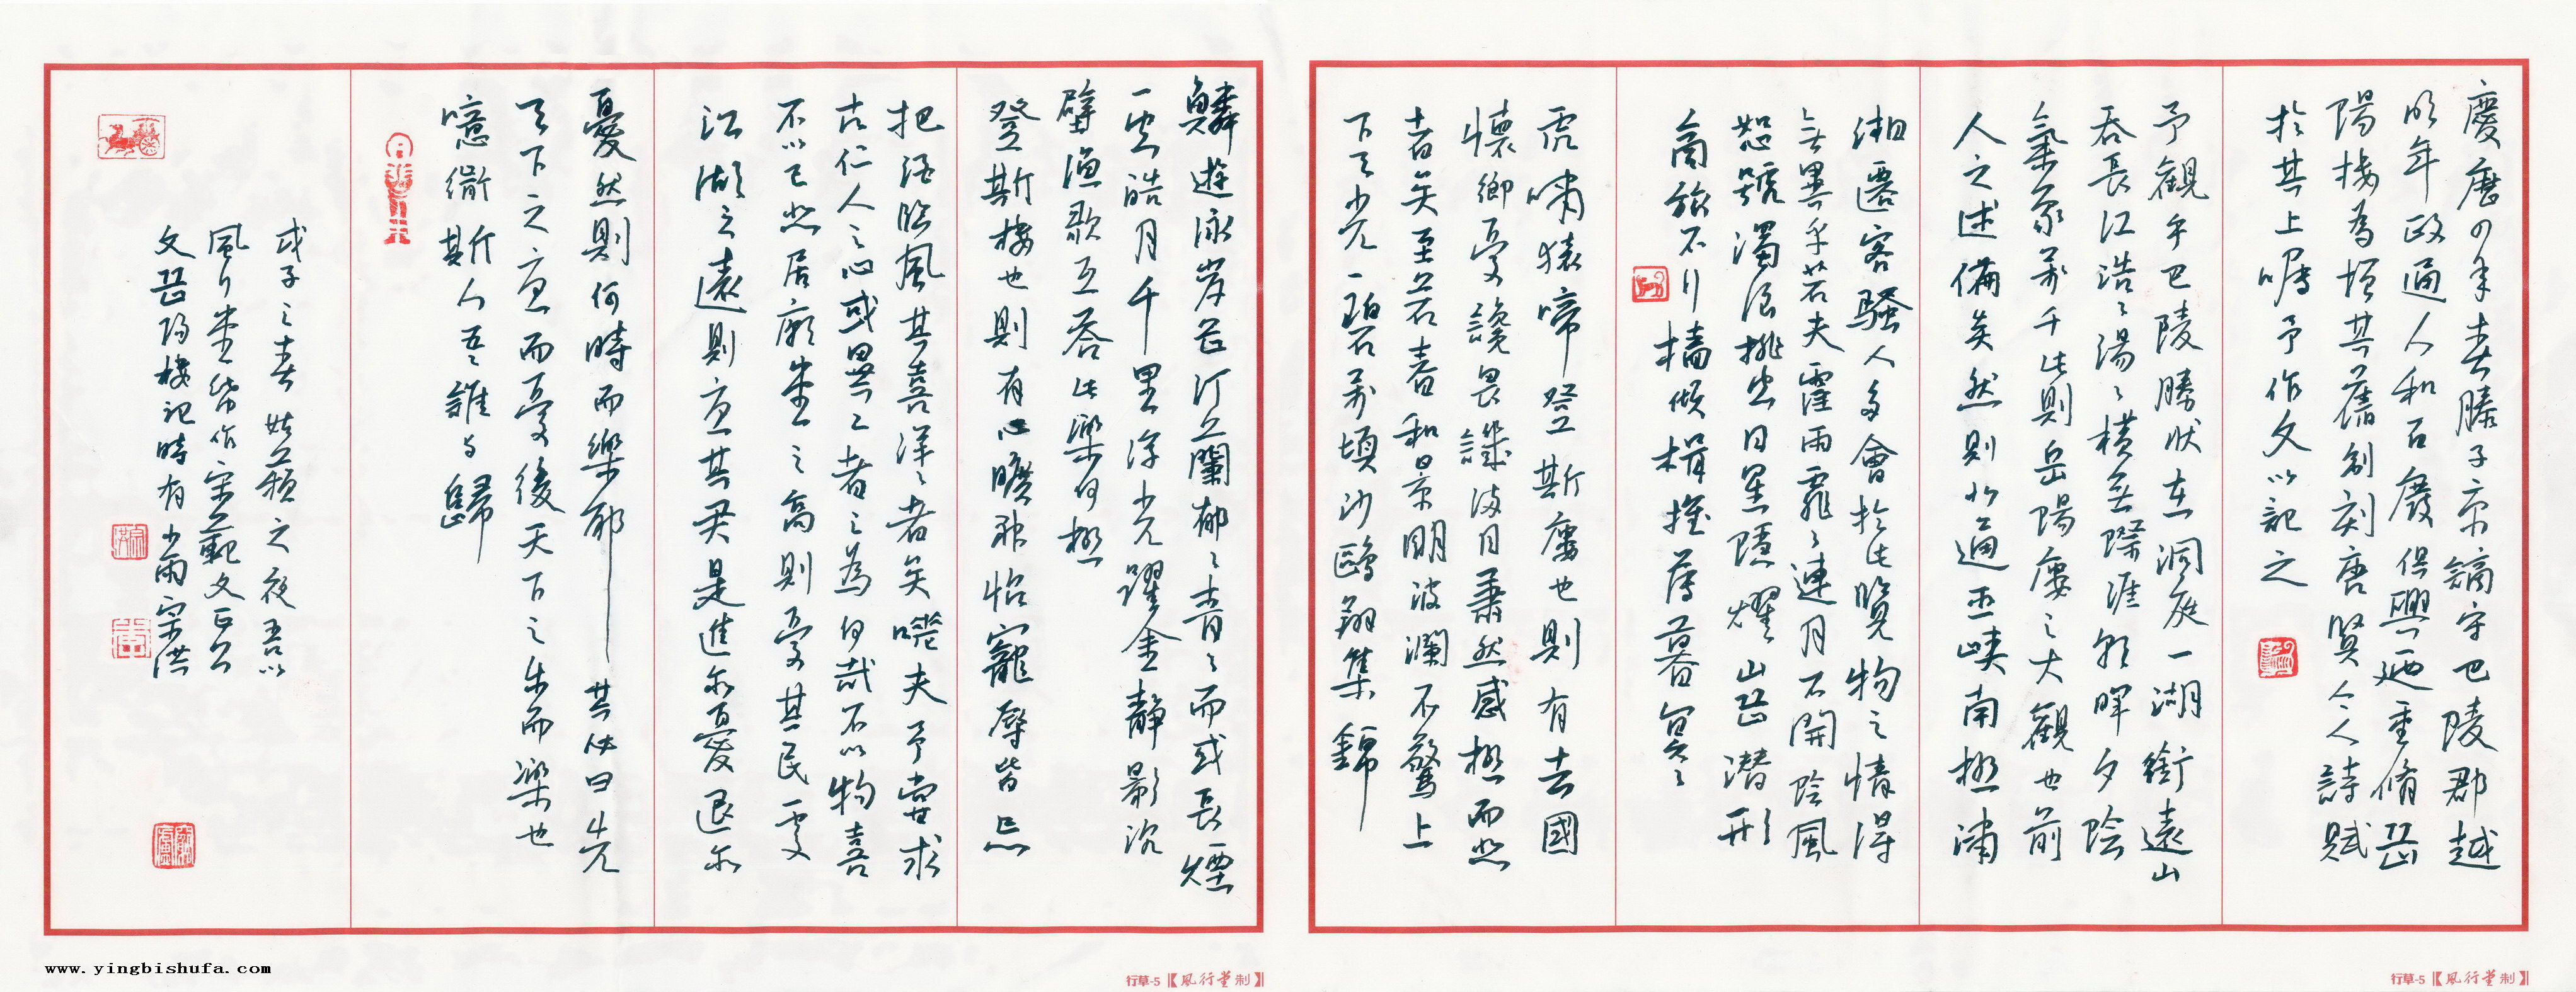 慶曆四年春滕子京謫守巴陵郡越
明年政通人和百廢俱興廼重脩岳
陽樓為增其舊制刻唐賢今人詩賦
於其上囑予作文以記之
予觀乎巴陵勝狀在洞庭一湖銜遠山
吞長江浩〻湯〻橫無際涯朝暉夕陰
氣象萬千此則岳陽樓之大觀也前
人之述備矣然則北通巫峽南極瀟
湘遷客騷人多會於此覽物之情得
無異乎若夫霪雨霏〻連月不開陰風
怒號濁浪排空日星隱燿山岳潛形
商旅不行檣傾楫摧薄暮冥〻
虎嘯猿啼登斯樓也則有去國
懷鄉憂讒畏譏滿目蕭然感極而悲
者矣至若春和景明波瀾不驚上
下天光一碧萬頃沙鷗翔集錦
鱗遊泳岸芷汀蘭郁〻青〻而或長煙
一空皓月千里浮光躍金靜影沉
璧漁歌互答此樂何極
登斯樓也則有心曠神怡寵辱皆忘
把酒臨風其喜洋〻者矣嗟夫予嘗求
古仁人之心或異二者之為何哉不以物喜
不以己悲居廟堂之高則憂其民處
江湖之遠則憂其君是進亦憂退亦
憂然則何時而樂耶其必曰先
天下之憂而憂後天下之樂而樂也
噫微斯人吾誰與歸
戊子之春姑蘇之夜吾以
風行堂紙作宋范文正公
文岳陽樓記時有小雨宗洪
www.yingbishufa.com
行草-5【風行堂制】
行草-5【風行堂制】